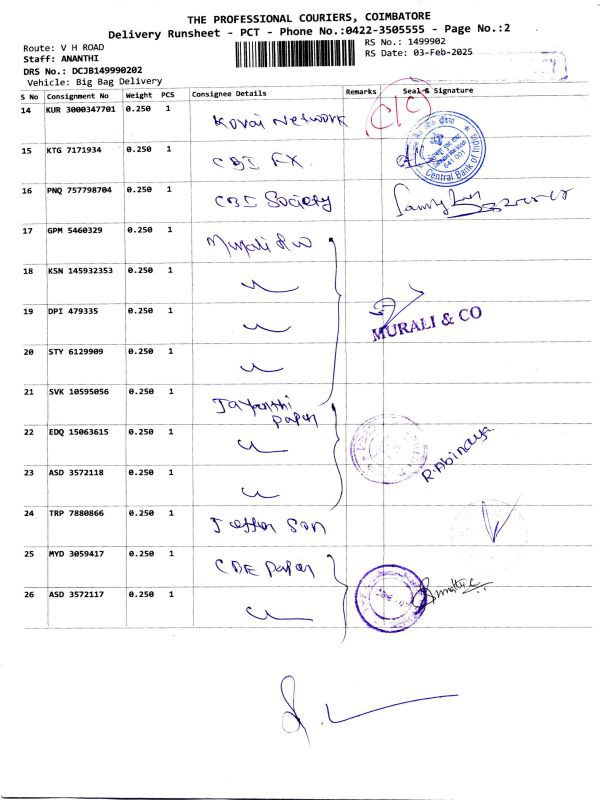 THE PROFESSIONAL COURIERS, COIMBATORE
Delivery Runsheet - PCT - Phone No.:0422-3505555 - Page No.:2
Route: V H ROAD
RS No.: 1499902
Staff: ANANTHI
RS Date: 03-Feb-2025
DRS No.: DCJB149990202
Vehicle: Big Bag Delivery
S No Consignment No Weight PCS Consignee Details Remarks Seal & Signature
14 KUR 3000347701 0.250 1 Kovai Network C/C
15 KTG 7171934 0.250 1 CBI FX
Central Bank of India
641 001
16 PNQ 757798704 0.250 1 CBI Society
17 GPM 5460329 0.250 1 Murali & Co
18 KSN 145932353 0.250 1
19 DPI 479335 0.250 1
MURALI & CO
20 STY 6129909 0.250 1
21 SVK 10595056 0.250 1 Jayanthi
Paper
22 EDQ 15063615 0.250 1
R. Abinaya
23 ASD 3572118 0.250 1
24 TRP 7880866 0.250 1
25 MYD 3059417 0.250 1 Paper
26 ASD 3572117 0.250 1